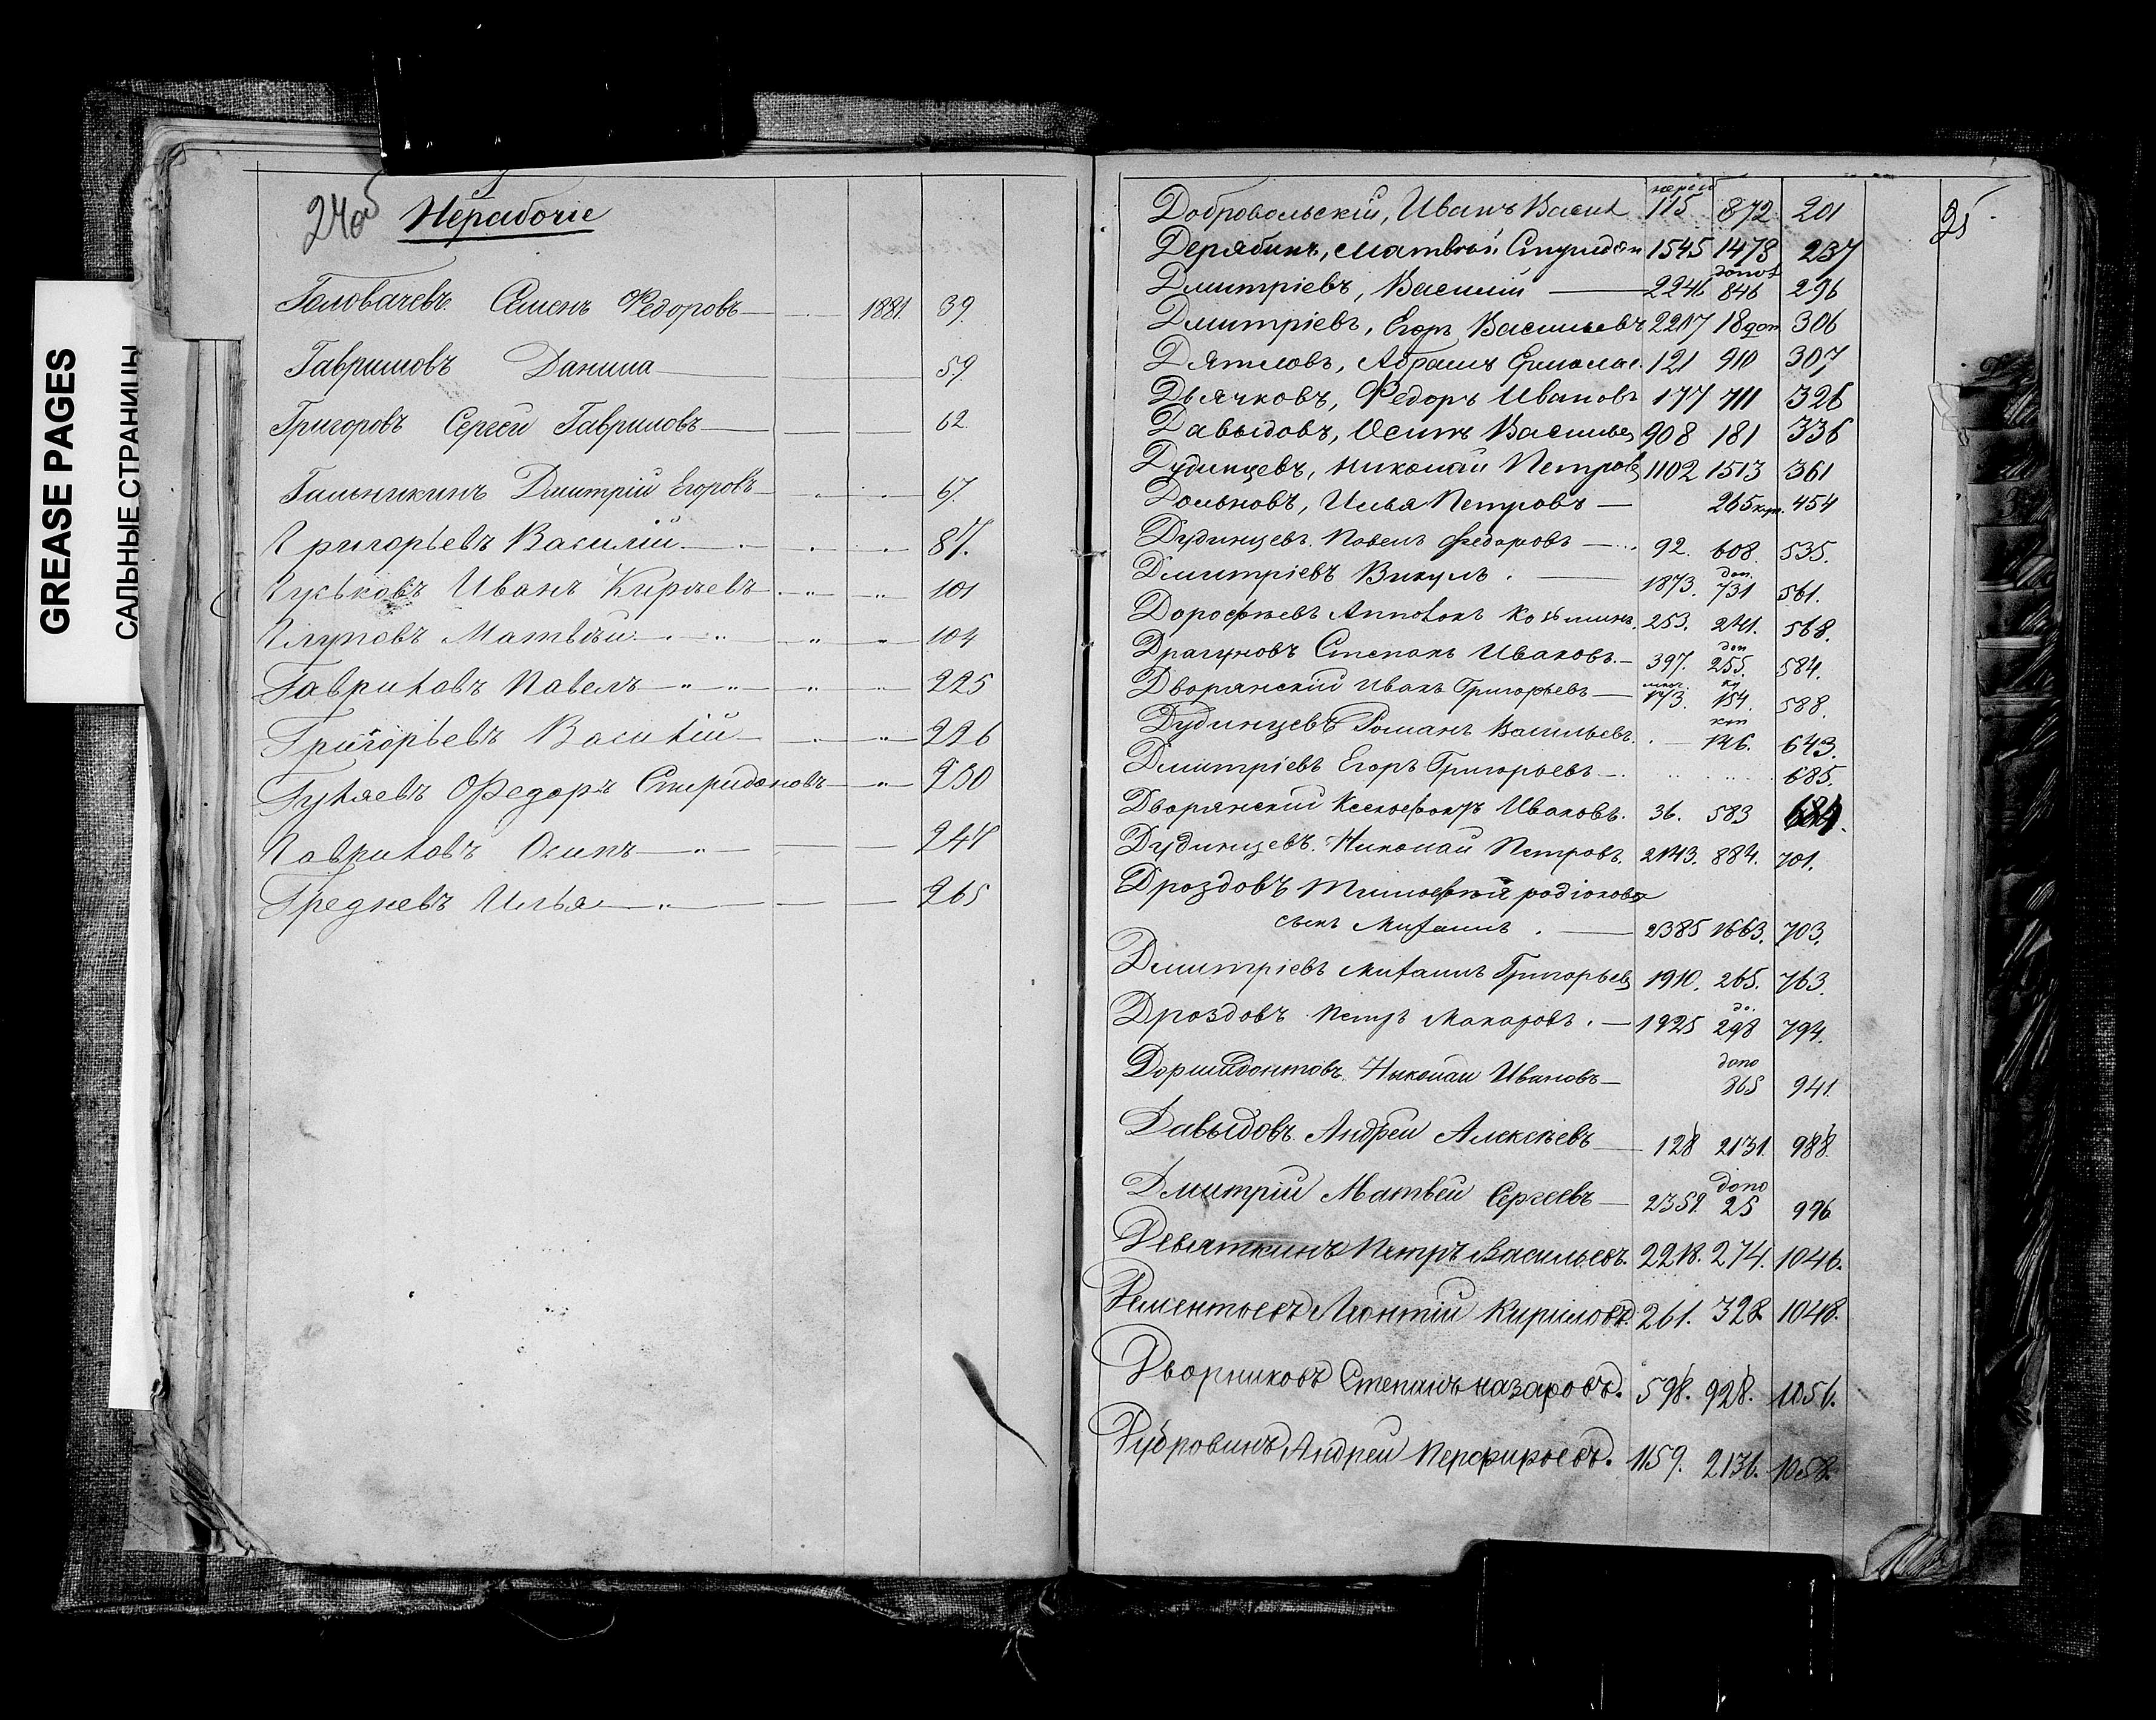 GREASE PAGES
САЛЬНЫЕ СТРАНИЦЫ
24об
Нерабочіе
Головачевъ Семенъ Федоровъ 1881. 39.
Гавриловъ Данила 59.
Григоровъ Сергей Гавриловъ 62.
Гальникинъ Дмитрій Егоровъ 67.
Григорьевъ Василій 87.
Гуськовъ Иванъ Кирѣевъ 101
Глуховъ Матвѣй 104
Гавриловъ Павелъ 225
Григорьевъ Василій 226
Гуляевъ Федоръ Спиридоновъ 230
Гавриловъ Осипъ 248
Гредневъ Илья 265
25
Добровольскій, Иванъ Васил 115 872 201
Дерябинъ, Матвѣй Спиридон 1545 1478 237
Дмитріевъ, Василій 2246 846 296
Дмитріевъ, Егоръ Васильевъ 2217 18 доп 306
Дятловъ, Абрамъ Ермолае. 121 910 307
Дьячковъ, Федоръ Ивановъ 177 711 326
Давыдовъ, Осипъ Васильев 908 181 336
Дудинцевъ, Николай Петров 1102 1513 361
Дольновъ, Илья Петровъ 265 454
Дудинцевъ. Павелъ Федоровъ 92. 608. 535.
Дмитріевъ Викулъ. 1873. доп. 731 561.
Дорофеевъ Апполонъ Козьминъ. 253. 241. 568.
Драгуновъ Степанъ Ивановъ. 397. доп 255. 584.
Дворянскій Иванъ Григорьевъ 173. 154. 588.
Дудинцевъ Романъ Васильевъ. 126. 643.
Дмитріевъ Егоръ Григорьевъ 685.
Дворянскій Ксенофонтъ Ивановъ. 36. 583
Дудинцевъ. Николай Петровъ. 2143. 884. 701.
Дроздовъ Тимофѣй родіоновъ
сынъ Михаилъ. 2385 1663. 703.
Дмитріевъ Михаилъ Григорьев 1910. 265. 763.
Дроздовъ Петръ Макаровъ. 1925 до. 298 794.
Дормидонтовъ. Николай Ивановъ допо 865 941.
Давыдовъ. Андрей Алексѣевъ 128 2131. 988.
Дмитрій Матвей Сергеевъ 2359. допо 25 996
Девяткинъ Петръ Васильевъ. 2218. 274. 1046.
Дементьевъ Леонтій Кириловъ. 261. 328 1048.
Дворниковъ Степанъ назаровъ. 598. 928. 1056.
Дубровинъ Андрей Перфирьевъ. 1159. 2136. 1058.